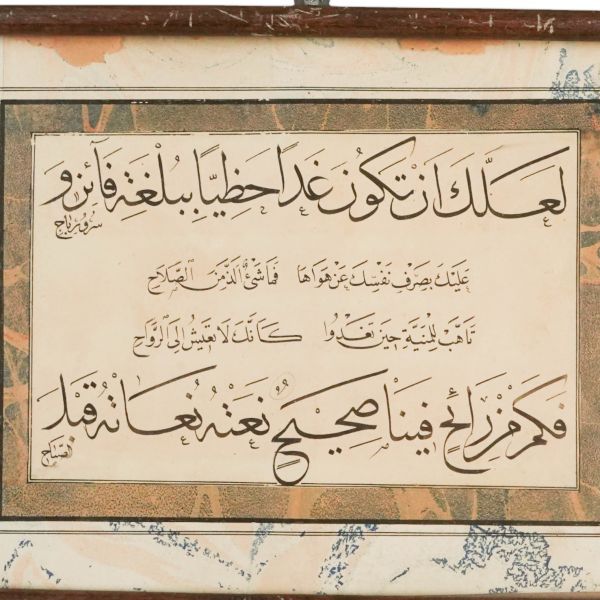 لَعَلَّكَ اَنْ تَكُونَ غَدًا حَظِيًّا بِبُلْغَةِ فَآئِزٍ وَ سُرُورِ رَبَاحِ
عَلَيْكَ بِصَرْفِ نَفْسِكَ عَنْ هَوَاهَا فَمَا شَئٌ اَلَذَّ مِنَ الصَّلَاحِ
تَاَهَّبْ لِلْمَنِيَّةِ حِينَ تَغْدُوا كَاَنَّكَ لَا تَعِيشُ اِلَى الرَّوَاحِ
فَكَمْ مِنْ رَائِحٍ فِينَا صَحِيحٍ نَعَتْهُ نُعَاتُهُ قَبْلَ الصَّبَاحِ